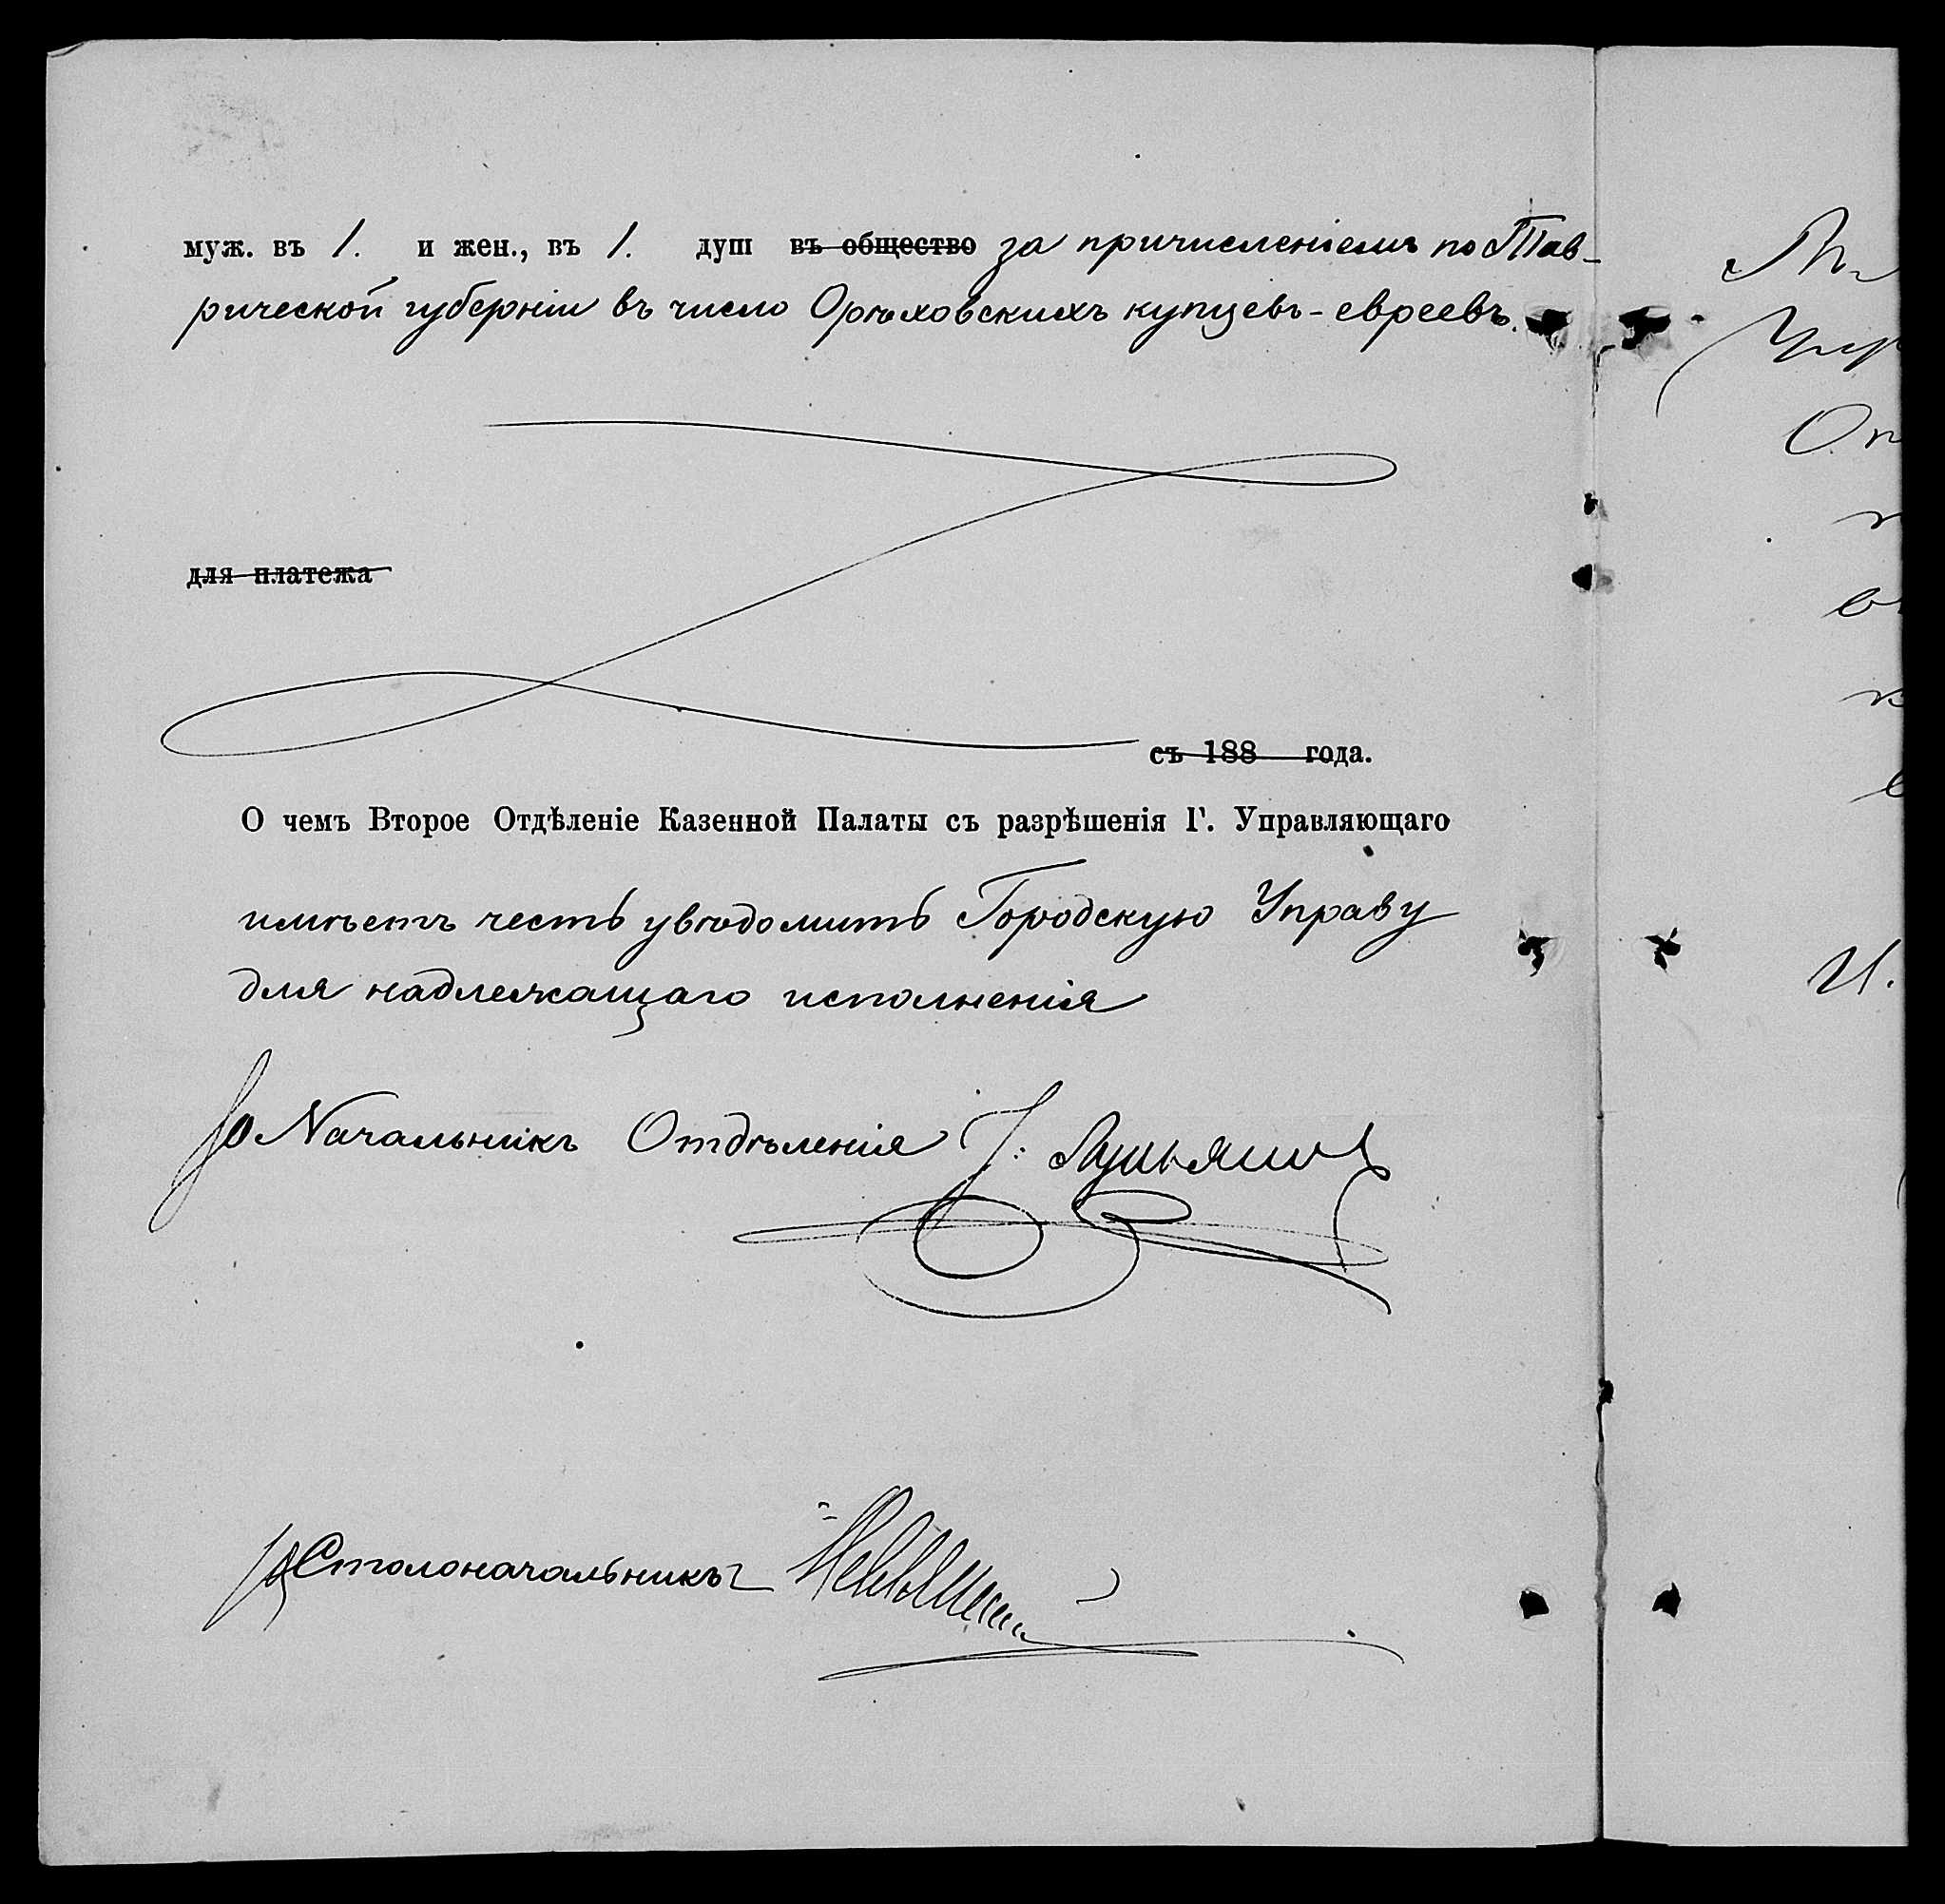 муж. въ 1. и жен., въ 1. душ въ общество за причисленіемъ по Тав-
рической губерніи въ число Орѣховскихъ купцевъ-евреевъ.
для платежа
съ 188 года.
О чемъ Второе Отдѣленіе Казенной Палаты съ разрѣшенія Г. Управляющаго
имѣетъ честь увѣдомить Городскую Управу
для надлежащаго исполненія
Начальникъ Отдѣленія
Столоначальникъ